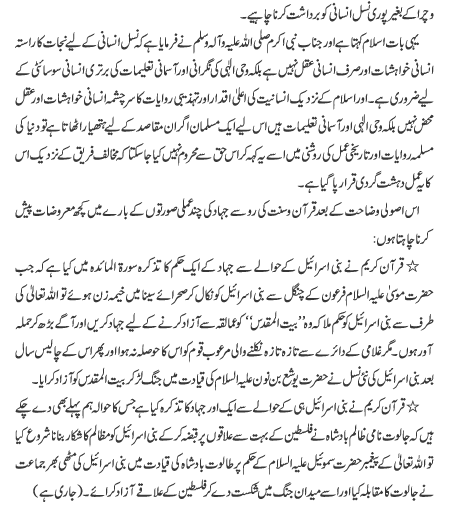 وچرا کے بغیر پوری نسل انسانی کو برداشت کرنا چاہیے۔
یہی بات اسلام کہتا ہے اور جناب نبی اکرم صلی اللہ علیہ وآلہ وسلم نے فرمایا ہے کہ نسل انسانی کے لیے نجات کا راستہ
انسانی خواہشات اور صرف انسانی عقل نہیں ہے بلکہ وحی الٰہی کی نگرانی اور آسمانی تعلیمات کی برتری انسانی سوسائٹی کے
لیے ضروری ہے۔ اور اسلام کے نزدیک انسانیت کی اعلیٰ اقدار اور تہذیبی روایات کا سرچشمہ انسانی خواہشات اور عقل
محض نہیں بلکہ وحی الٰہی اور آسمانی تعلیمات ہیں اس لیے ایک مسلمان اگر ان مقاصد کے لیے ہتھیار اٹھاتا ہے تو دنیا کی
مسلمہ روایات اور تاریخی عمل کی روشنی میں اسے یہ کہہ کر اس حق سے محروم نہیں کیا جا سکتا کہ مخالف فریق کے نزدیک اس
کا یہ عمل دہشت گردی قرار پا گیا ہے۔
اس اصولی وضاحت کے بعد قرآن وسنت کی رو سے جہاد کی چند عملی صورتوں کے بارے میں کچھ معروضات پیش
کرنا چاہتا ہوں:
☆ قرآن کریم نے بنی اسرائیل کے حوالے سے جہاد کے ایک حکم کا تذکرہ سورۃ المائدہ میں کیا ہے کہ جب
حضرت موسیٰ علیہ السلام فرعون کے چنگل سے بنی اسرائیل کو نکال کر صحرائے سینا میں خیمہ زن ہوئے تو اللہ تعالیٰ کی
طرف سے بنی اسرائیل کو حکم ملا کہ وہ ”بیت المقدس“ کو عمالقہ سے آزاد کرنے کے لیے جہاد کریں اور آگے بڑھ کر حملہ
آور ہوں۔ مگر غلامی کے دائرے سے تازہ تازہ نکلنے والی مرعوب قوم کو اس کا حوصلہ نہ ہوا اور پھر اس کے چالیس سال
بعد بنی اسرائیل کی نئی نسل نے حضرت یوشع بن نون علیہ السلام کی قیادت میں جنگ لڑ کر بیت المقدس کو آزاد کرایا۔
☆ قرآن کریم نے بنی اسرائیل ہی کے حوالے سے ایک اور جہاد کا تذکرہ کیا ہے جس کا حوالہ ہم پہلے بھی دے چکے
ہیں کہ جالوت نامی ظالم بادشاہ نے فلسطین کے بہت سے علاقوں پر قبضہ کر کے بنی اسرائیل کو مظالم کا شکار بنانا شروع کیا
تو اللہ تعالیٰ کے پیغمبر حضرت سموئیل علیہ السلام کے حکم پر طالوت بادشاہ کی قیادت میں بنی اسرائیل کی مٹھی بھر جماعت
نے جالوت کا مقابلہ کیا اور اسے میدان جنگ میں شکست دے کر فلسطین کے علاقے آزاد کرائے۔ (جاری ہے)